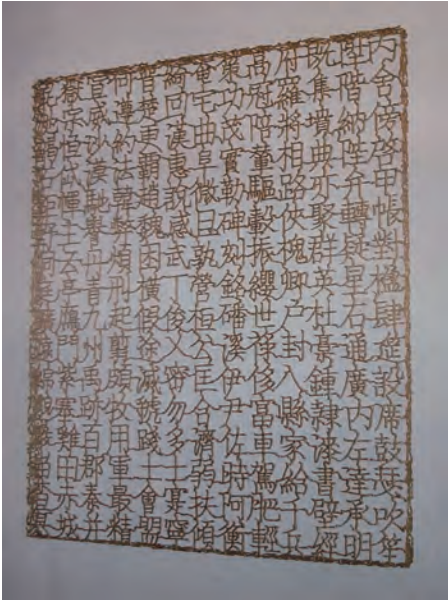 丙舍傍啓甲帳對楹肆筵設席鼓瑟吹笙
陞階納陛弁轉疑星右通廣內左達承明
既集墳典亦聚群英杜槀鍾隸漆書壁經
府羅將相路俠槐卿戶封八縣家給千兵
高冠陪輦驅轂振纓世祿侈富車駕肥輕
策功茂實勒碑刻銘磻溪伊尹佐時阿衡
奄宅曲阜微旦孰營桓公匡合濟弱扶傾
綺回漢惠說感武丁俊乂密勿多士寔寧
晉楚更霸趙魏困橫假途滅虢踐土會盟
何遵約法韓弊煩刑起翦頗牧用軍最精
宣威沙漠馳譽丹青九州禹跡百郡秦并
嶽宗恒岱禪主云亭鴈門紫塞雞田赤城
昆池碣石鉅野洞庭曠遠緜邈巖岫杳冥